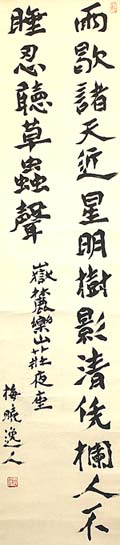 雨歇諸天近星明樹影清凭欄人不
睡忍聽草蟲聲
嶽麓樂山莊夜坐
梅曉逸人